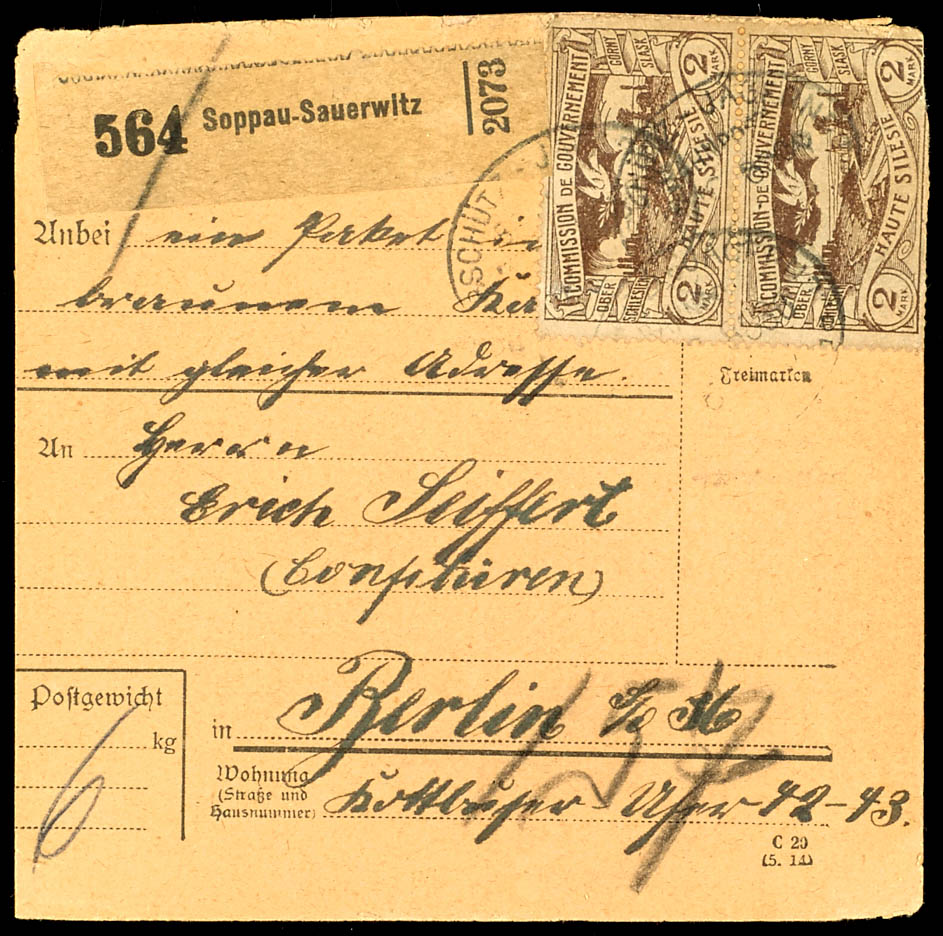 564 Soppau-Sauerwitz 2073
COMMISSION DE GOUVERNEMENT
HAUTE SILESIE
GORNY SLASK
OBER SCHLESIEN
2 MARK
2 MARK
COMMISSION DE GOUVERNEMENT
HAUTE SILESIE
GORNY SLASK
OBER SCHLESIEN
2 MARK
2 MARK
Anbei ein Paket in
braunem
mit gleicher Adresse.
Freimarken
An Herrn
Erich Seiffert
(Confitüren)
Postgewicht
kg
6
in Berlin
Wohnung
(Straße und
Hausnummer)
Kottbuser-Ufer 42-43.
C 29
(5. 14)